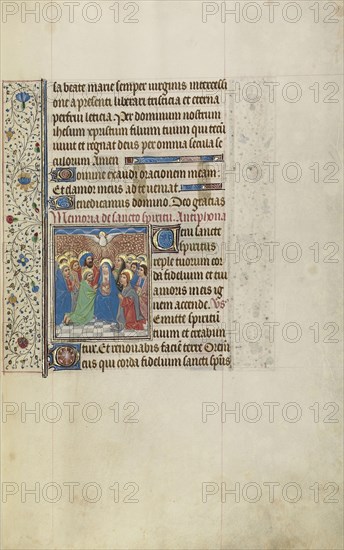 sa beate marie semper virginis intercessi
one a presenti liberari tristicia et eterna
perfrui leticia. Per dominum nostrum
ihesum xpristum filium tuum qui tecū
vivit et regnat deus per omnia secula se
culorum Amen
Domine exaudi orationem meam:
Et clamor meus ad te veniat.
Benedicamus domino. Deo gratias
Memoria de sancto spiritu. Antiphona
Veni sancte
spiritus
reple tuorum cor
da fidelium et tui
amoris in eis ig
nem accende. Vs
Emitte spiritū
tuum et creabun
tur. Et renovabis faciē terre Orem
Deus qui corda fidelium sancti spūs
PHOTO12
PHOTO12
PHOTO12
PHOTO12
PHOTO12
PHOTO12